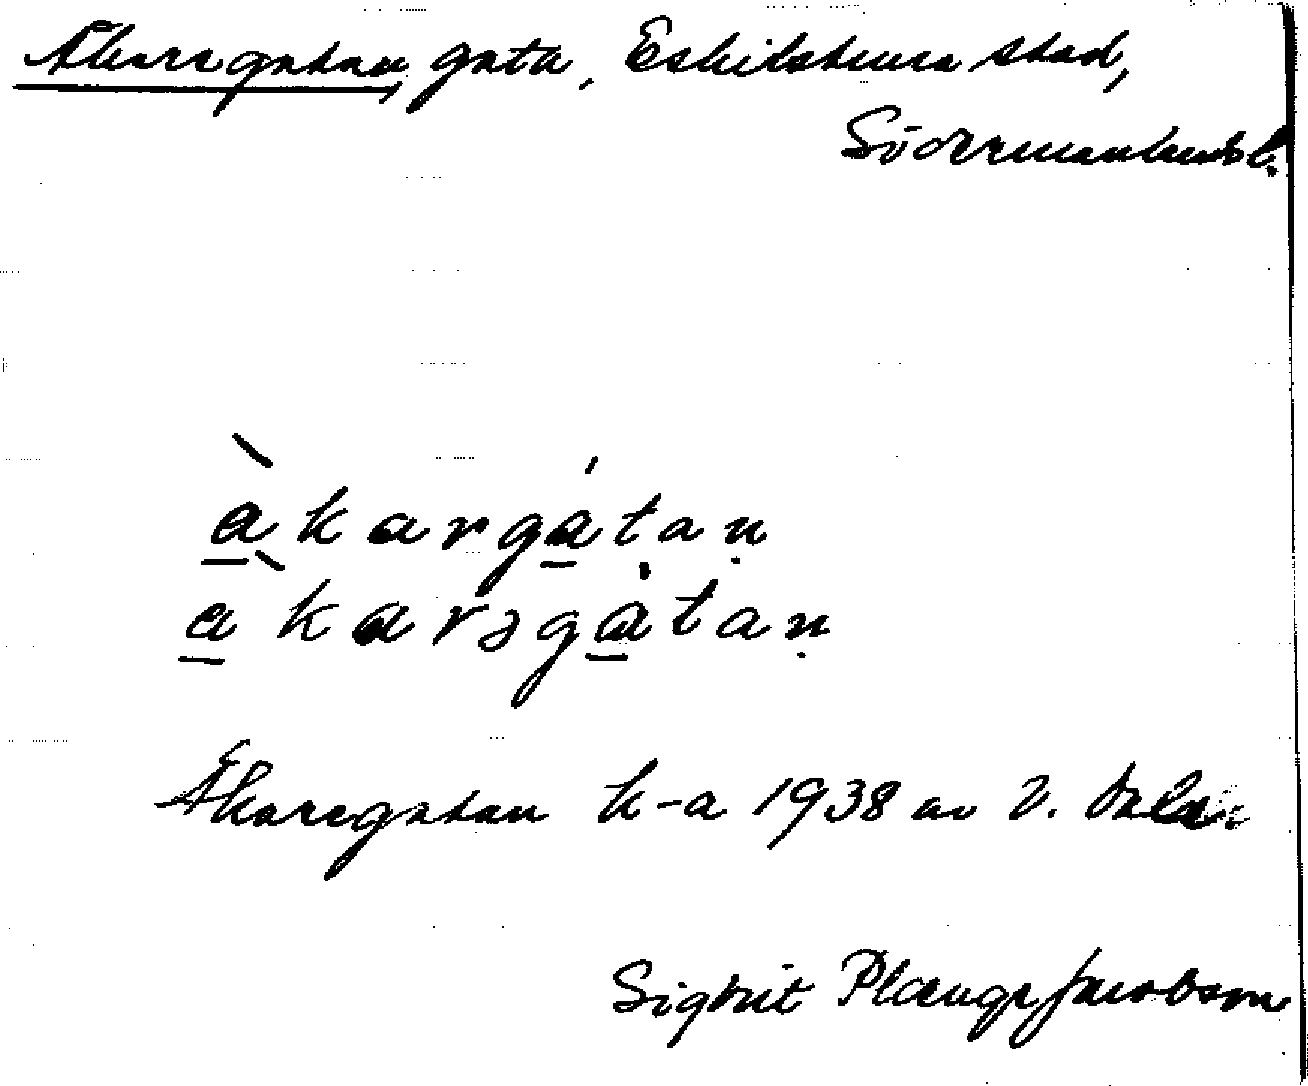 Åkaregatan, gata, Eskilstuna stad,
Södermanland l.
à̲kargá̲tan̩
à̲karəgà̲tan̩
Åkaregatan k-a 1938 av V.
Sigrit Plænge Jacobson